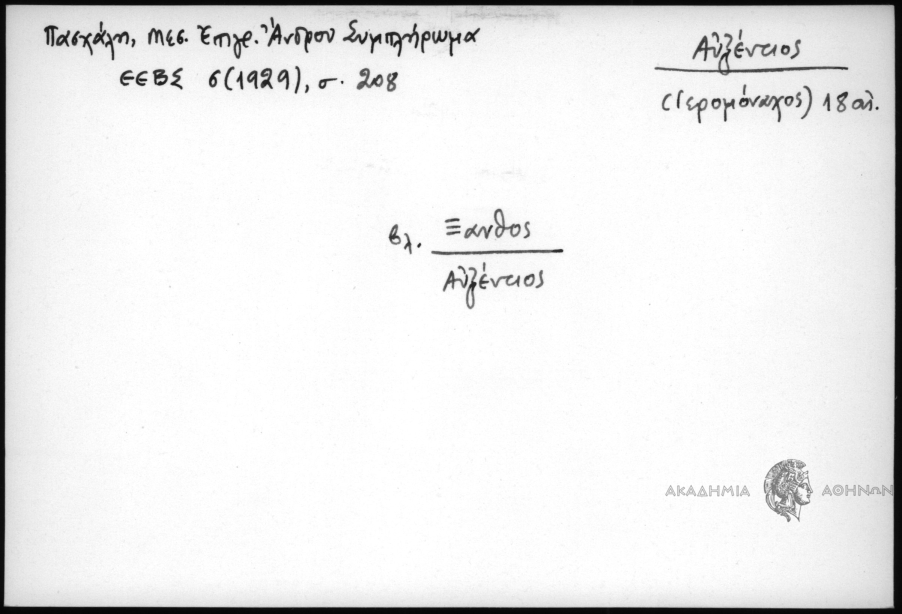 Πασχάλη, Μεσ. Ἐπιγρ. Ἄνδρου Συμπλήρωμα
ΕΕΒΣ 6(1929), σ. 208
Αὐξέντιος
(Ἱερομόναχος) 18 αἰ.
βλ. Ξανθος
Αὐξέντιος
ΑΚΑΔΗΜΙΑ ΑΘΗΝΩΝ